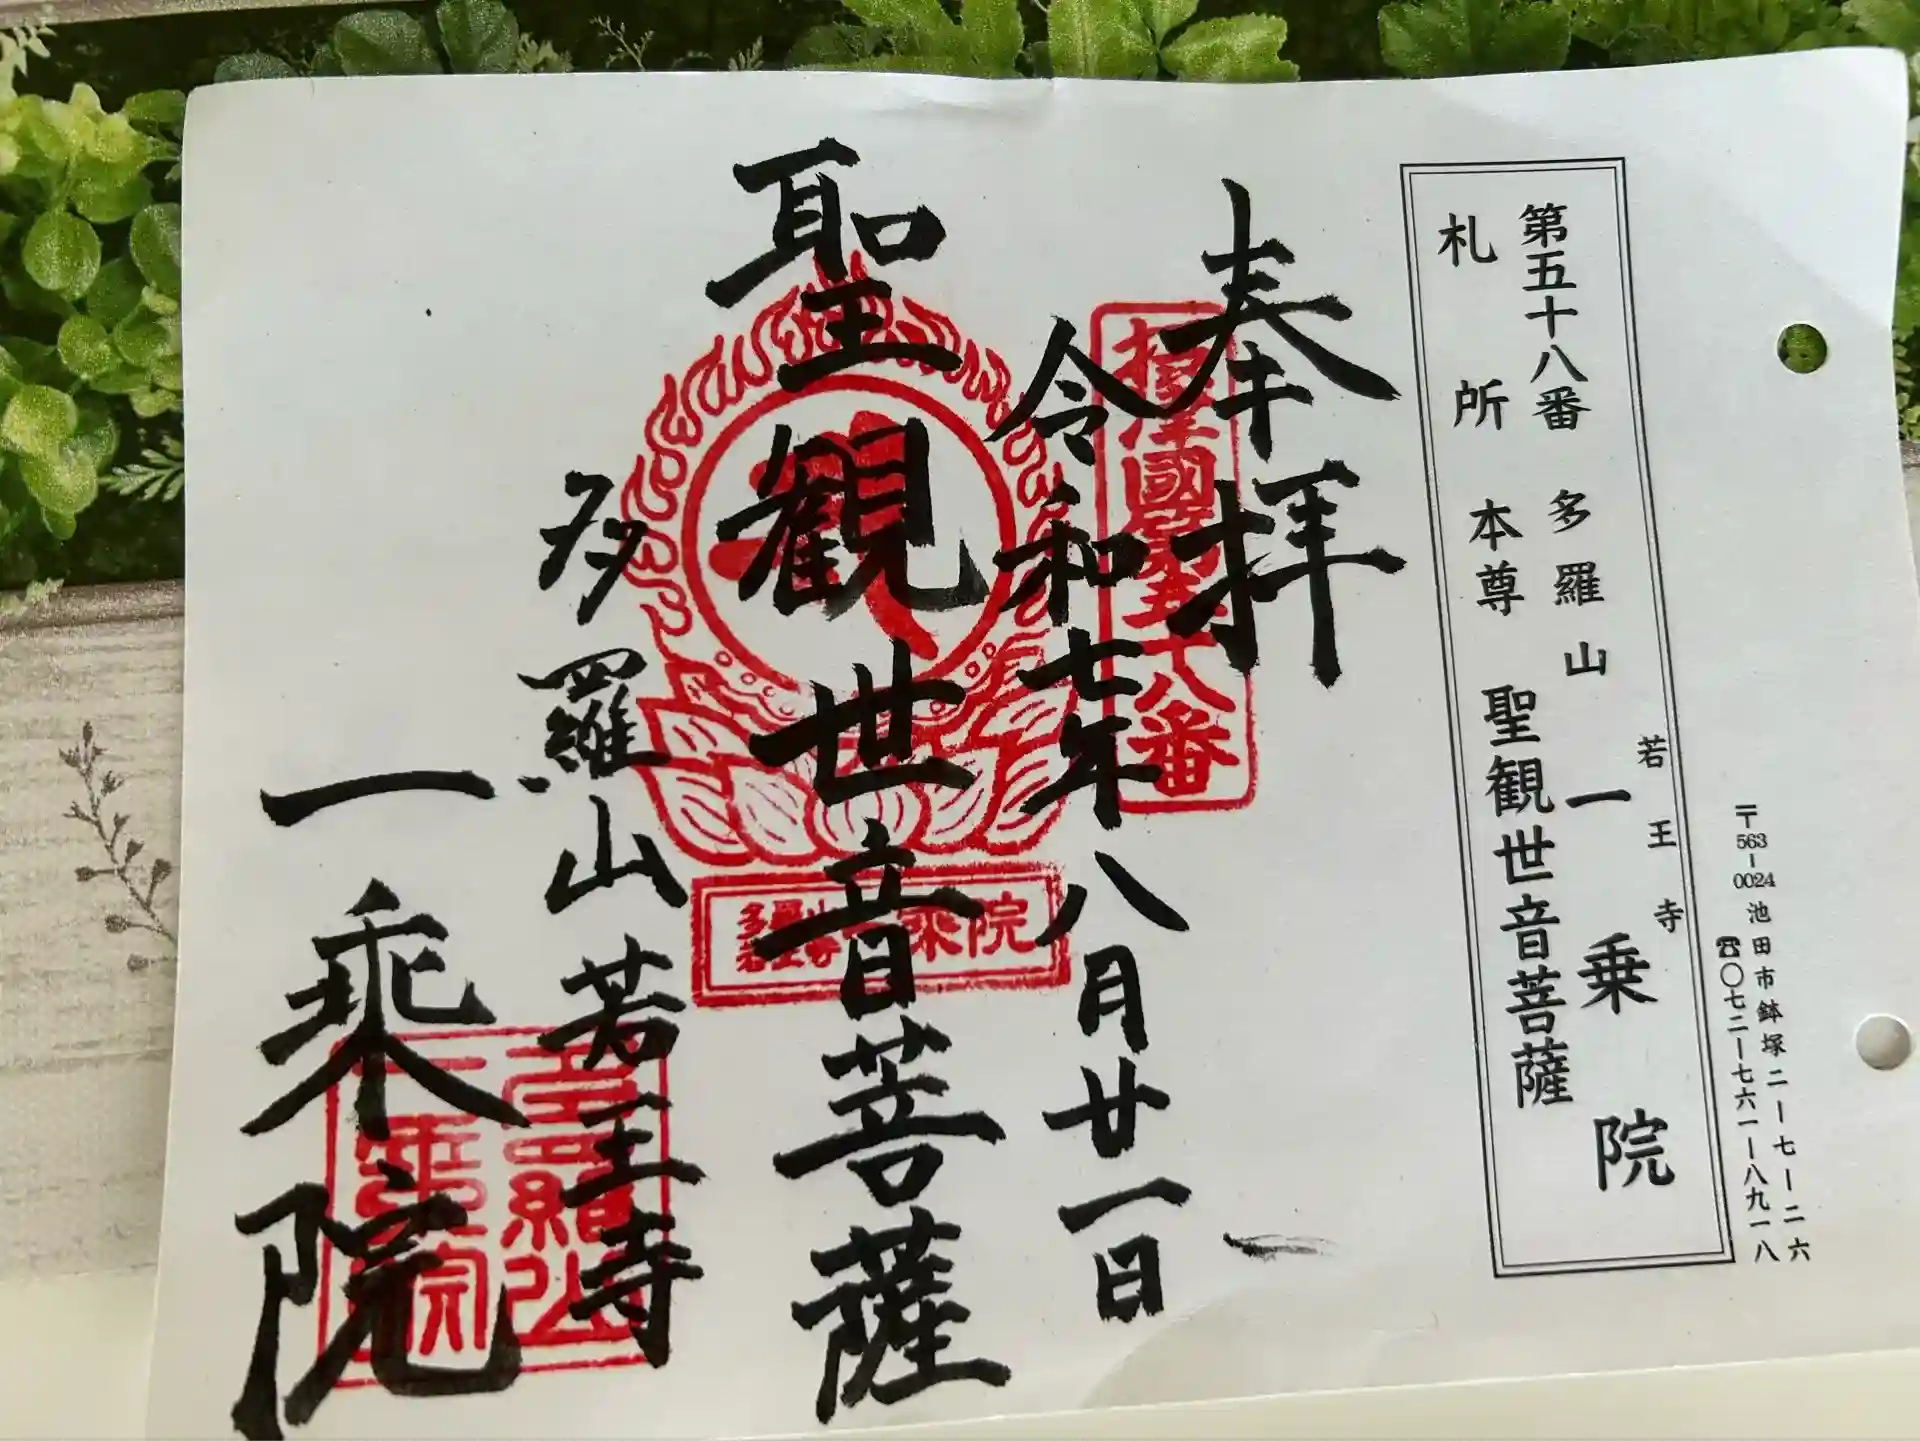 〒563-0024 池田市鉢塚二ー七ー二六
☎〇七二ー七六一ー八九一八
若王寺
第五十八番 多羅山 一乗院
札所 本尊 聖観世音菩薩
奉拝
摂津國第五十八番
令和七年八月廿一日
聖観世音菩薩
多羅山 一乗院
若王寺
多羅山 若王寺
多羅山
一乗院
一乗院